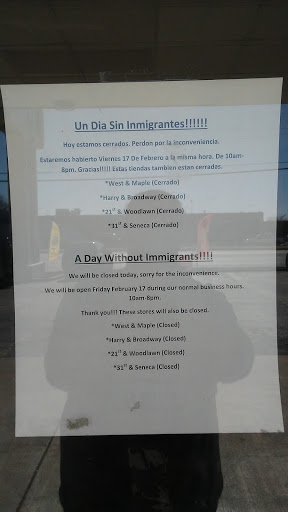 Un Dia Sin Inmigrantes!!!!!!
Hoy estamos cerrados. Perdon por la inconveniencia.
Estaremos habierto Viernes 17 De Febrero a la misma hora. De 10am-
8pm. Gracias!!!!! Estas tiendas tambien estan cerradas.
*West & Maple (Cerrado)
*Harry & Broadway (Cerrado)
*21st & Woodlawn (Cerrado)
*31st & Seneca (Cerrado)
A Day Without Immigrants!!!!
We will be closed today, sorry for the inconvenience.
We will be open Friday February 17 during our normal business hours.
10am-8pm.
Thank you!!! These stores will also be closed.
*West & Maple (Closed)
*Harry & Broadway (Closed)
*21st & Woodlawn (Closed)
*31st & Seneca (Closed)